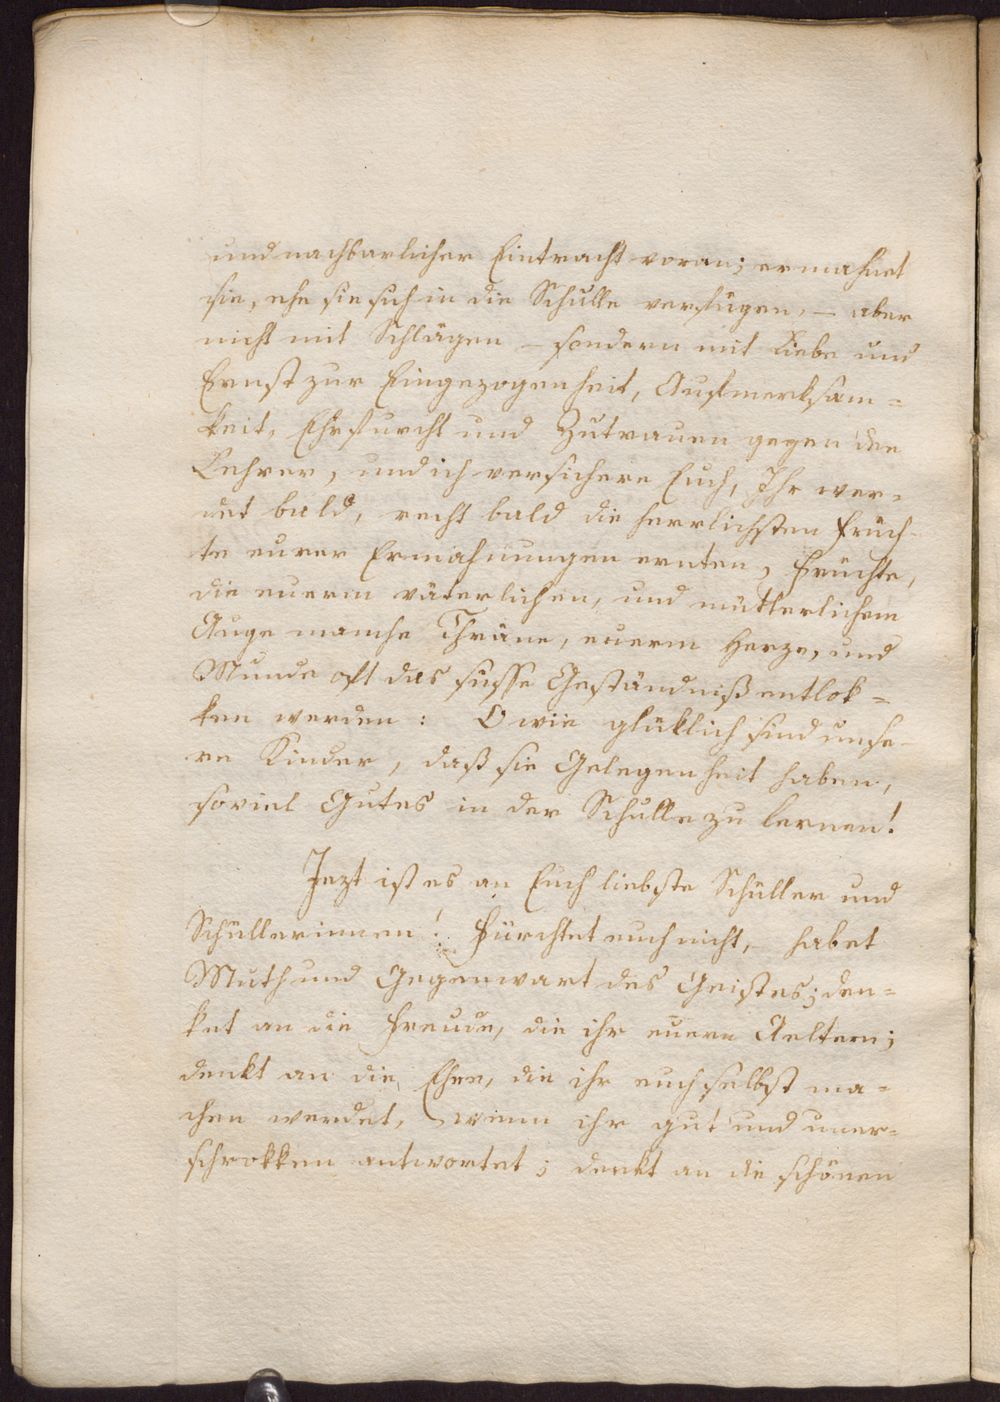 und nachbarlicher Eintracht voran; ermahnet
sie, ehe sie sich in die Schulle verfügen, – aber
nicht mit Schlägen – sondern mit Liebe und
Ernst zur Eingezogenheit, Aufmerksam=
keit, Ehrfurcht und Zutrauen gegen den
Lehrer, und ich versichere Euch, Ihr wer=
det bald, recht bald die herrlichsten Früch=
te eurer Ermahnungen ernten, Früchte,
die euerm väterlichen, und mütterlichem
Auge manche Thräne, euerm Herze, und
Munde oft das süsse Geständniß entlok=
ken werden: O wie glüklich sind unse=
re Kinder, daß sie Gelegenheit haben,
soviel Gutes in der Schulle zu lernen!
Jezt ist es an Euch liebste Schüller und
Schüllerinnen! Fürchtet euch nicht, – habet
Muth und Gegenwart des Geistes; den=
ket an die Freude, die ihr euern Aeltern;
denkt an die Ehre, die ihr euch selbst ma=
chen werdet, wenn ihr gut und uner=
schrokken antwortet; denkt an die schönen